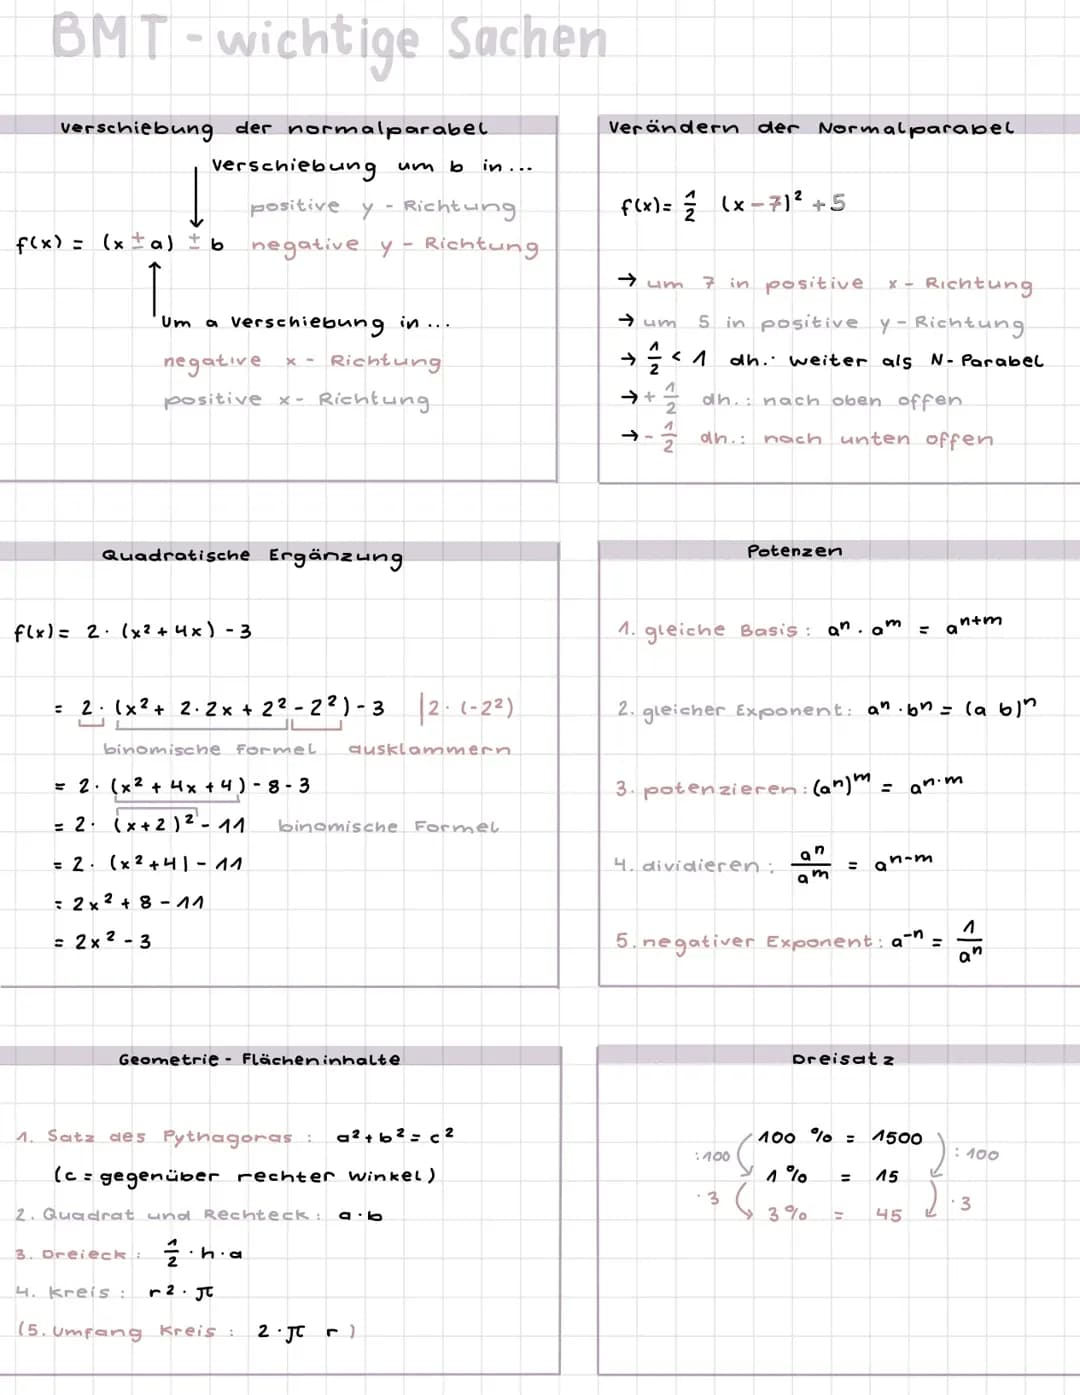 BMT - wichtige Sachen
Verschiebung der Normalparabel
Verschiebung um b in...
positive y - Richtung
f(x) = (x ± a) ± b negative y - Richtung
Um a Verschiebung in ...
negative x - Richtung
positive x - Richtung
Verändern der Normalparabel
f(x) = 1/2 (x - 7)² + 5
→ um 7 in positive x - Richtung
→ um 5 in positive y - Richtung
→ 1/2 < 1 dh.: weiter als N- Parabel
→ + 1/2 dh.: nach oben offen
→ - 1/2 dh.: nach unten offen
Quadratische Ergänzung
f(x) = 2 · (x² + 4x) - 3
= 2 · (x² + 2 · 2x + 2² - 2²) - 3 | 2 · (-2²)
binomische Formel ausklammern
= 2 · (x² + 4x + 4) - 8 - 3
= 2 · (x+2)² - 11 binomische Formel
= 2 · (x² + 4) - 11
= 2x² + 8 - 11
= 2x² - 3
Potenzen
1. gleiche Basis: aⁿ · aᵐ = aⁿ⁺ᵐ
2. gleicher Exponent: aⁿ · bⁿ = (a b)ⁿ
3. potenzieren: (aⁿ)ᵐ = aⁿ·ᵐ
4. dividieren: aⁿ/aᵐ = aⁿ⁻ᵐ
5. negativer Exponent: a⁻ⁿ = 1/aⁿ
Geometrie - Flächeninhalte
1. Satz des Pythagoras : a² + b² = c²
(c = gegenüber rechter Winkel)
2. Quadrat und Rechteck : a · b
3. Dreieck : 1/2 · h · a
4. Kreis : r² · π
(5. Umfang Kreis : 2 · π r )
Dreisatz
100 % = 1500
:100 : 100
1 % = 15
· 3 · 3
3 % = 45